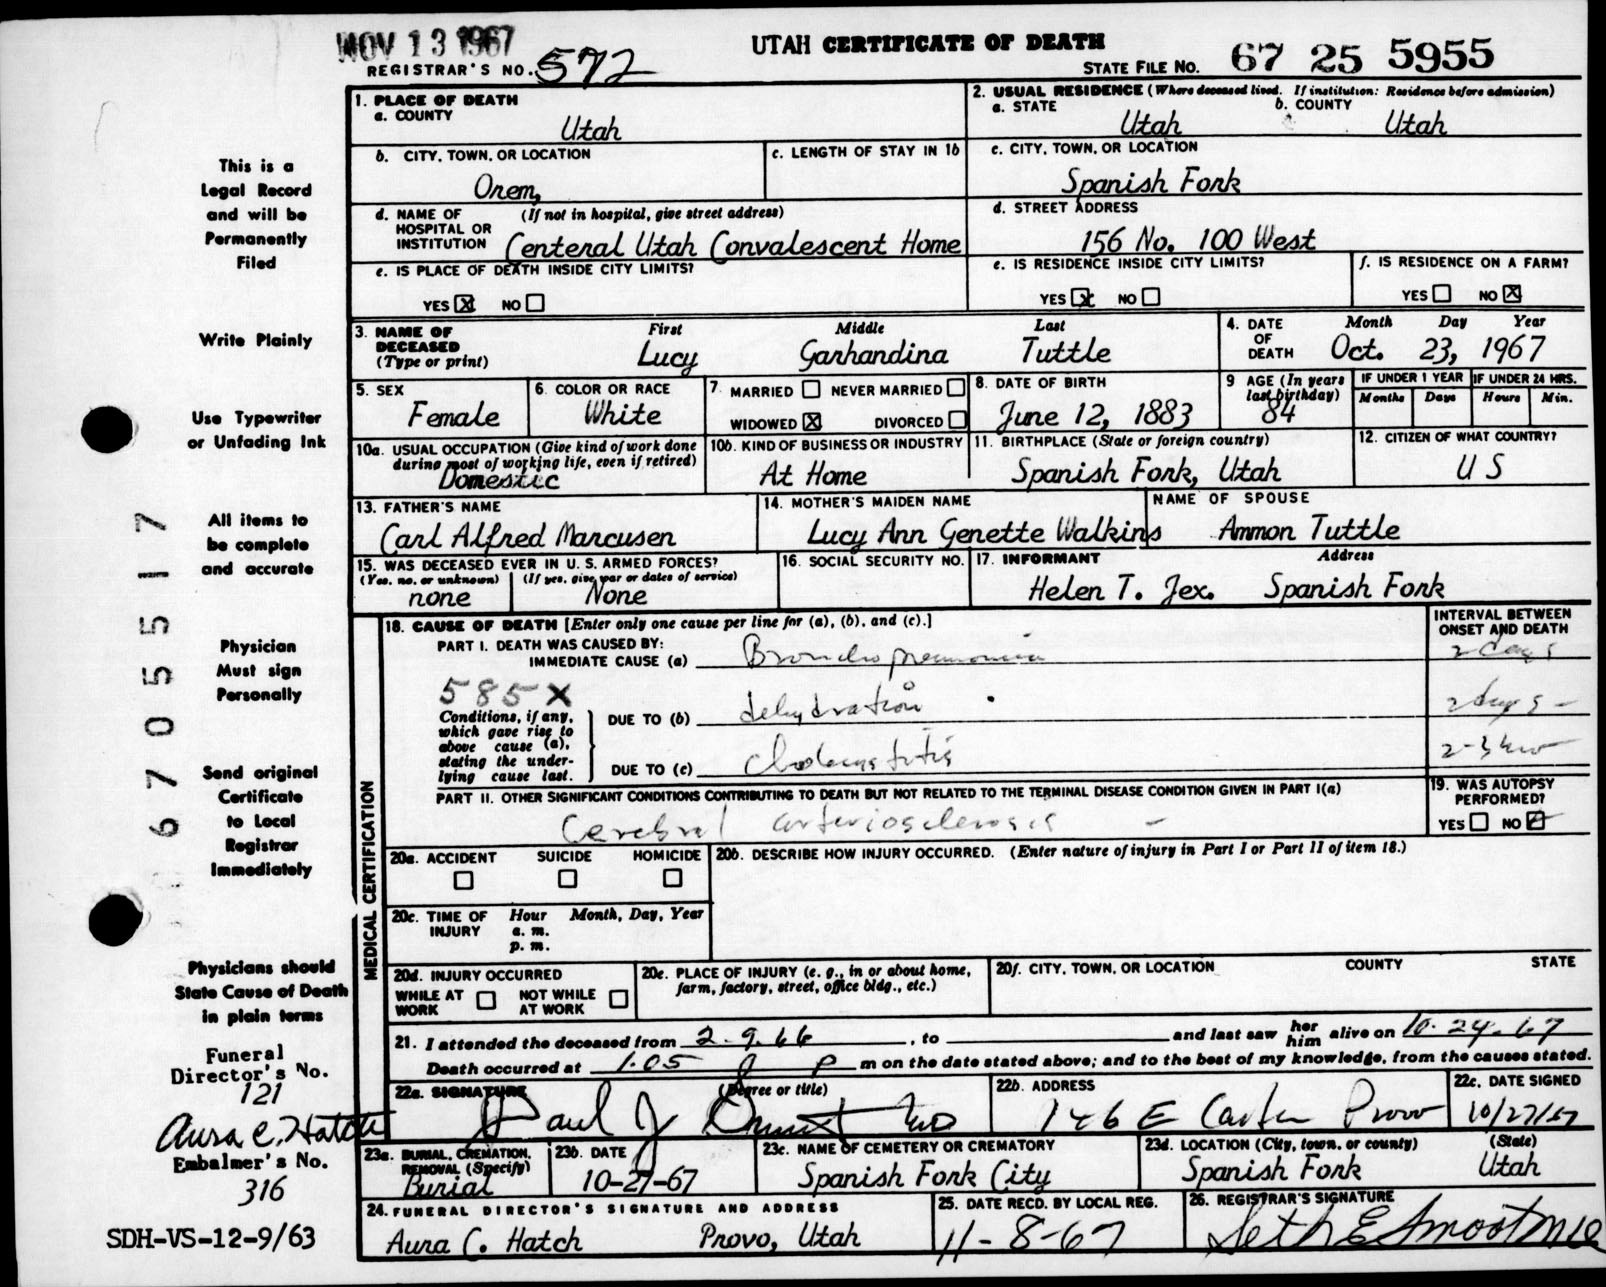 NOV 13 1967
UTAH CERTIFICATE OF DEATH
REGISTRAR'S NO. 572
STATE FILE NO. 67 25 5955
This is a
Legal Record
and will be
Permanently
Filed
Write Plainly
Use Typewriter
or Unfading Ink
All items to
be complete
and accurate
Physician
Must sign
Personally
Send original
Certificate
to Local
Registrar
Immediately
Physicians should
State Cause of Death
in plain terms
Funeral
Director's No.
121
Aura C. Hatch
Embalmer's No.
316
SDH-VS-12-9/63
67055 17
1. PLACE OF DEATH
a. COUNTY
Utah
2. USUAL RESIDENCE (Where deceased lived. If institution: Residence before admission)
a. STATE b. COUNTY
Utah Utah
b. CITY, TOWN, OR LOCATION
Orem,
c. LENGTH OF STAY IN 1b
c. CITY, TOWN, OR LOCATION
Spanish Fork
d. NAME OF (If not in hospital, give street address)
HOSPITAL OR
INSTITUTION Centeral Utah Convalescent Home
d. STREET ADDRESS
156 No. 100 West
e. IS PLACE OF DEATH INSIDE CITY LIMITS?
YES X NO
e. IS RESIDENCE INSIDE CITY LIMITS?
YES X NO
f. IS RESIDENCE ON A FARM?
YES NO X
3. NAME OF First Middle Last
DECEASED
(Type or print) Lucy Garhandina Tuttle
4. DATE Month Day Year
OF
DEATH Oct. 23, 1967
5. SEX
Female
6. COLOR OR RACE
White
7. MARRIED NEVER MARRIED
WIDOWED X DIVORCED
8. DATE OF BIRTH
June 12, 1883
9 AGE (In years
last birthday)
84
IF UNDER 1 YEAR IF UNDER 24 HRS.
Months Days Hours Min.
10a. USUAL OCCUPATION (Give kind of work done
during most of working life, even if retired)
Domestic
10b. KIND OF BUSINESS OR INDUSTRY
At Home
11. BIRTHPLACE (State or foreign country)
Spanish Fork, Utah
12. CITIZEN OF WHAT COUNTRY?
U S
13. FATHER'S NAME
Carl Alfred Marcusen
14. MOTHER'S MAIDEN NAME
Lucy Ann Genette Walkins
NAME OF SPOUSE
Ammon Tuttle
15. WAS DECEASED EVER IN U. S. ARMED FORCES?
(Yes, no, or unknown) (If yes, give war or dates of service)
none None
16. SOCIAL SECURITY NO.
17. INFORMANT Address
Helen T. Jex. Spanish Fork
MEDICAL CERTIFICATION
18. CAUSE OF DEATH [Enter only one cause per line for (a), (b), and (c).]
INTERVAL BETWEEN
ONSET AND DEATH
PART I. DEATH WAS CAUSED BY:
IMMEDIATE CAUSE (a) Bronchopneumonia 2 days
585X
Conditions, if any,
which gave rise to
above cause (a),
stating the under-
lying cause last.
DUE TO (b) dehydration 2 days -
DUE TO (c)
PART II. OTHER SIGNIFICANT CONDITIONS CONTRIBUTING TO DEATH BUT NOT RELATED TO THE TERMINAL DISEASE CONDITION GIVEN IN PART I(a)
Cerebral arteriosclerosis -
19. WAS AUTOPSY
PERFORMED?
YES NO X
20a. ACCIDENT SUICIDE HOMICIDE
20b. DESCRIBE HOW INJURY OCCURRED. (Enter nature of injury in Part I or Part II of item 18.)
20c. TIME OF Hour Month, Day, Year
INJURY a. m.
p. m.
20d. INJURY OCCURRED
WHILE AT WORK NOT WHILE AT WORK
20e. PLACE OF INJURY (e. g., in or about home,
farm, factory, street, office bldg., etc.)
20f. CITY, TOWN, OR LOCATION COUNTY STATE
21. I attended the deceased from 2-9-66, to and last saw her him alive on 10-24-67
Death occurred at 1:05 p m on the date stated above; and to the best of my knowledge, from the causes stated.
22a. SIGNATURE (Degree or title)
Paul J MD
22b. ADDRESS
146 E Center Provo
22c. DATE SIGNED
10/27/67
23a. BURIAL, CREMATION,
REMOVAL (Specify)
Burial
23b. DATE
10-27-67
23c. NAME OF CEMETERY OR CREMATORY
Spanish Fork City
23d. LOCATION (City, town, or county) (State)
Spanish Fork Utah
24. FUNERAL DIRECTOR'S SIGNATURE AND ADDRESS
Aura C. Hatch Provo, Utah
25. DATE RECD. BY LOCAL REG.
11-8-67
26. REGISTRAR'S SIGNATURE
Seth E Smoot